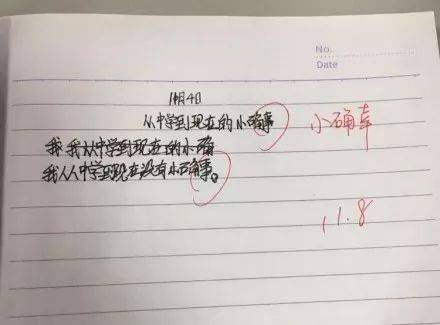 No.
Date
11月4日
从中学到现在的小确事
小确幸
我 我从中学到现在的小确
我从人中学到现在没有小确事。
11.8